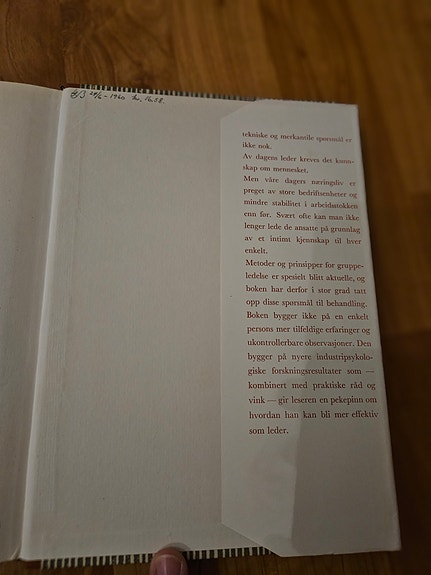 29/6-1960 kr. 16.58.
tekniske og merkantile spørsmål er
ikke nok.
Av dagens leder kreves det kunn-
skap om mennesket.
Men våre dagers næringsliv er
preget av store bedriftsenheter og
mindre stabilitet i arbeidsstokken
enn før. Svært ofte kan man ikke
lenger lede de ansatte på grunnlag
av et intimt kjennskap til hver
enkelt.
Metoder og prinsipper for gruppe-
ledelse er spesielt blitt aktuelle, og
boken har derfor i stor grad tatt
opp disse spørsmål til behandling.
Boken bygger ikke på en enkelt
persons mer tilfeldige erfaringer og
ukontrollerbare observasjoner. Den
bygger på nyere industripsykolo-
giske forskningsresultater som —
kombinert med praktiske råd og
vink — gir leseren en pekepinn om
hvordan han kan bli mer effektiv
som leder.